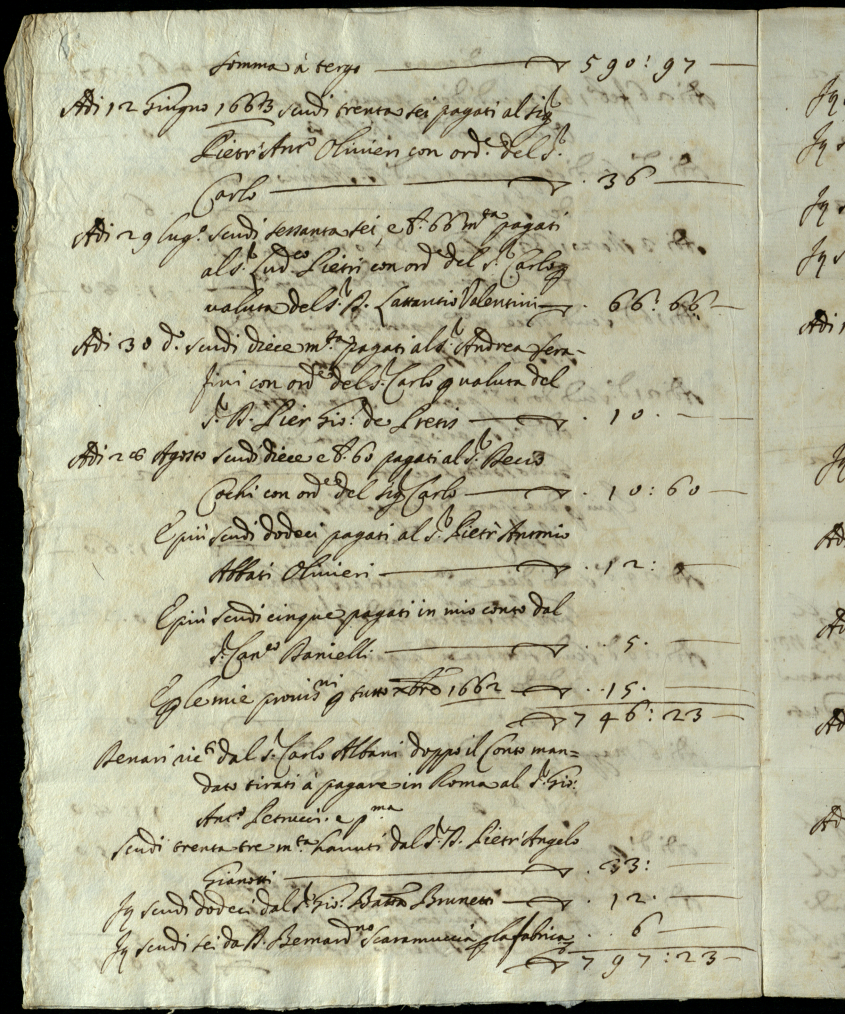 Somma à tergo — 590: 97 —
Adi 12 Giugno 1663 scudi trenta sei pagati al Sig.r
Pietr'Ant.o Olivieri con ord.e del S.r
Carlo — . 36 —
Adi 29 lug.o scudi sessanta sei, e b. 66 m.ta pagati
al S.r Lud.co Pietri con ord.e del S.r Carlo p
valuta del S.r D. Lattantio Valentini — . 66: 66 —
Adi 30 d.o scudi diece m.ta pagati al S.r Andrea Sera-
fini con ord.e del S.r Carlo p valuta del
S.r D. Pier Gio: de Pretis — . 10 . —
Adi 26 Agosto scudi diece e b. 60 pagati al S.r Decio
Cochi con ord.e del Sig.r Carlo — . 10: 60 —
E più scudi dodeci pagati al S.r Pietr'Antonio
Abbati Olivieri — . 12: —
E più scudi cinque pagati in mio conto dal
S.r Can.co Danielli — . . 5 . —
E p le mie provis.ni p tutto xbre 1662 — . 15 . —
— 746: 23 —
Denari ric.ti dal S.r Carlo Albani doppo il Conto man=
dato tirati à pagare in Roma al S.r Gio:
Ant.o Petrucci. e p.ma
Scudi trenta tre m.ta havuti dal S.r D. Pietr'Angelo
Gianotti — . 33: —
Scudi dodeci dal S.r Gio: Batta Brunetti — . 12 . —
Scudi sei da D. Bernard.no Scaramuccia p la fabrica . . 6 —
— 797: 23 —